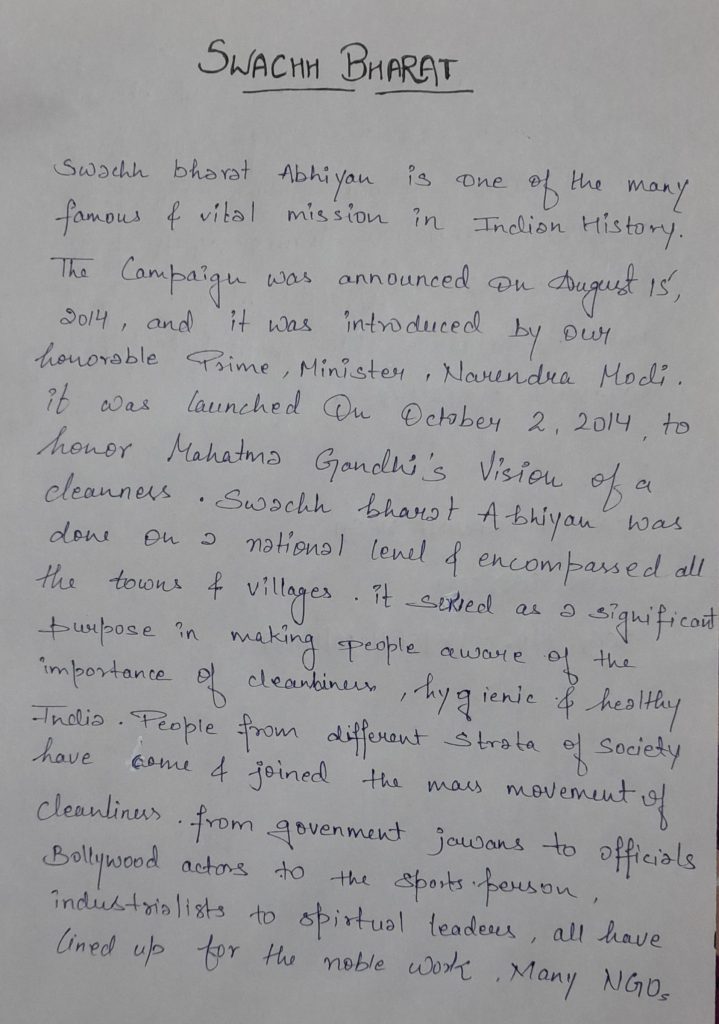 SWACHH BHARAT
Swachh bharat Abhiyan is one of the many
famous & vital mission in Indian History.
The Campaign was announced on August 15,
2014, and it was introduced by our
honorable Prime, Minister, Narendra Modi.
it was launched On October 2, 2014, to
honor Mahatma Gandhi's Vision of a
cleanness. Swachh bharat Abhiyan was
done on a national level & encompassed all
the towns & villages. it served as a significant
purpose in making people aware of the
importance of cleanbiness, hygienic & healthy
India. People from different strata of Society
have come & joined the mass movement of
cleanliness. from govenment jawans to officials
Bollywood actors to the sports.person,
industrialists to spirtual leaders, all have
lined up for the noble work. Many NGOs